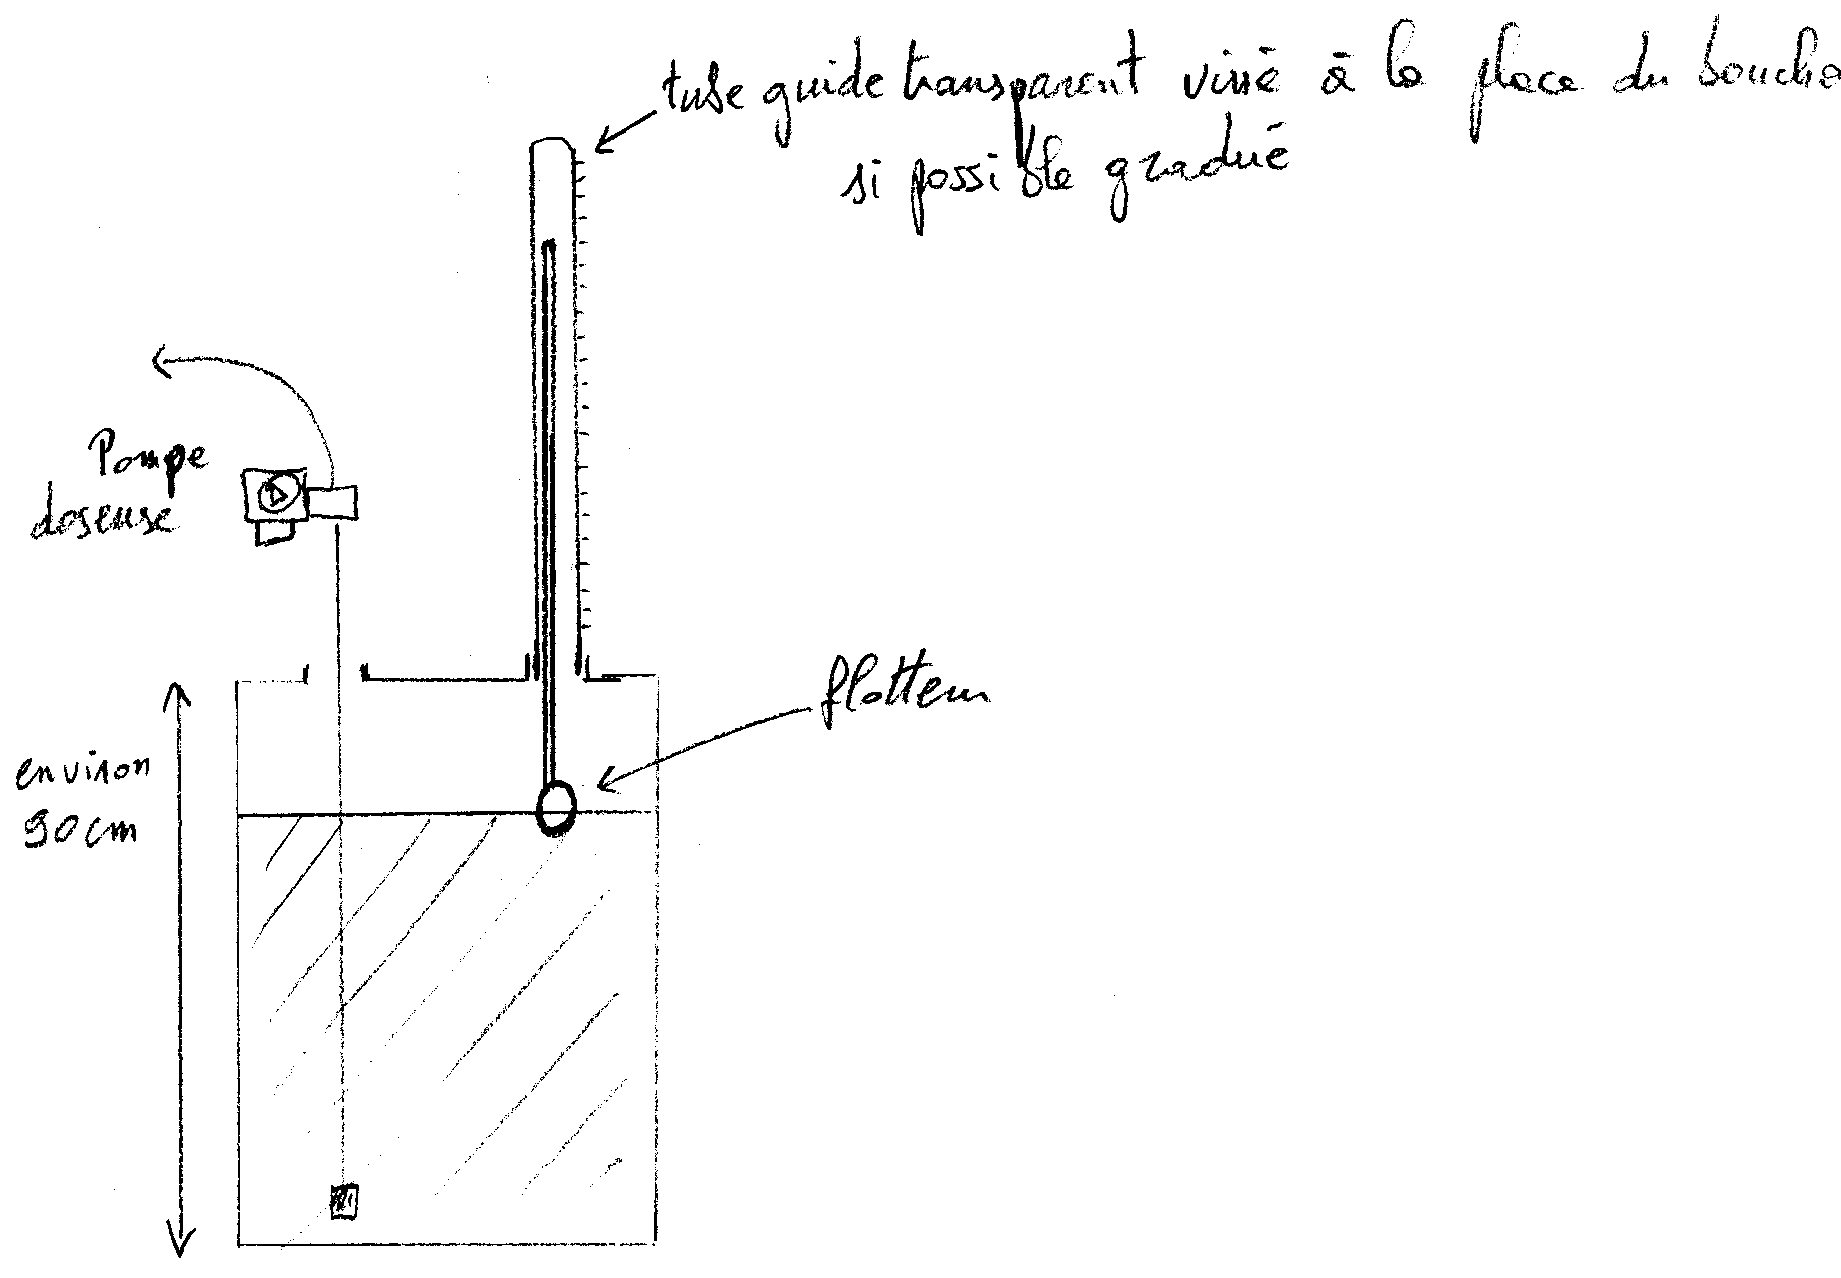 tube guide transparent vissé à la place du boucho
si possible gradué
Pompe
doseuse
flotteur
environ
90 cm